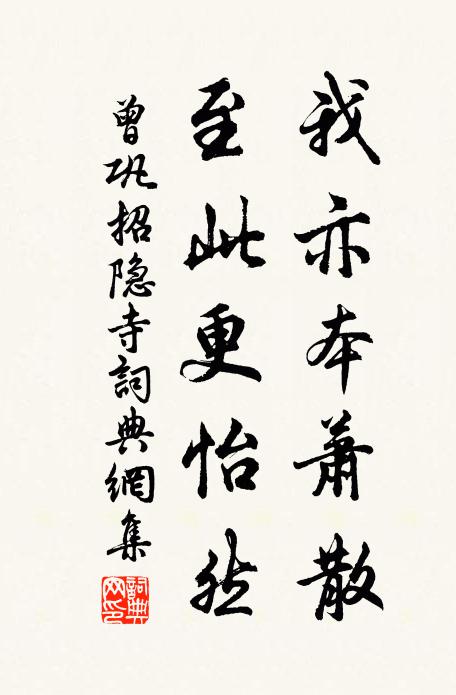 我亦本蕭散
至此更怡然
曾巩招隐寺詞典網集
詞典网印